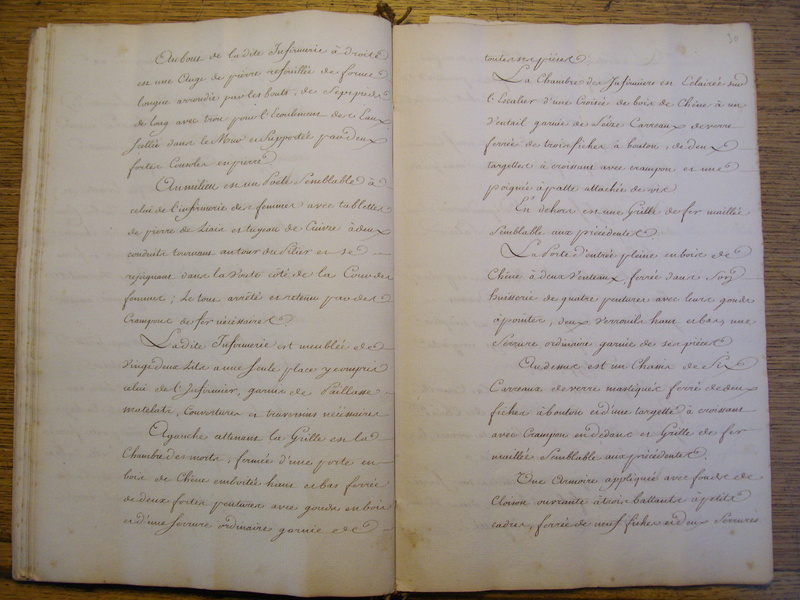 Au bout de la dite Infirmerie à droite
est une Auge de pierre refouillée de forme
longue arrondie par les bouts, de Sept pieds
de long avec trou pour l'Ecoulement des Eaux
Scellée dans le Mur et Supportée par deux
fortes Consoles en pierre
Au milieu est un Poële Semblable à
celui de l'infirmerie des femmes avec tablette
de pierre de Liais et tuyau de Cuivre à deux
conduits tournant autour du Pilier et se
rejoignant dans la Voute côté de la Cour des
femmes ; Le tous arrêté et retenu par des
Crampons de fer nécessaires
La dite Infirmerie est meublée de
Vingt deux Lits a une seule place y compris
celui de l'Infirmier, garnis de Paillasse
matelats, Couvertures et traversins nécessaires
A gauche attenant la Grille est la
Chambre des morts ; fermée d'une porte en
bois de Chêne emboitée haut et bas ferrée
de deux fortes pentures avec gonds en bois
et d'une serrure ordinaire garnie de
30
toutes ses pièces
La Chambre des Infirmiers est Eclairée sur
l'Escalier d'une Croisée de bois de Chêne à un
Ventail garnie de Seize Carreaux de verre
ferrée de trois fiches à bouton, de deux
targettes à croissant avec crampon et une
poignée à patte attachée de vis
En dehors est une Grille de fer maillée
Semblable aux précédentes
La Porte d'entrée pleine en bois de
Chêne à deux Venteaux, ferrée dans Son
huisserie de quatre pentures avec leurs gonds
à pointes, deux Verrouils haut et bas, une
Serrure ordinaire garnie de ses pièces
Au dessus est un Chasis de Six
Carreaux de verre mastiqués ferré de deux
fiches à bouton et d'une targette à croissant
avec Crampon en dedans et Grille de fer
maillée Semblable aux précédentes
Une Armoire appliquée avec fonds de
Cloison ouvrante à trois battants à petits
cadres, ferrée de neuf fiches et deux Serrures